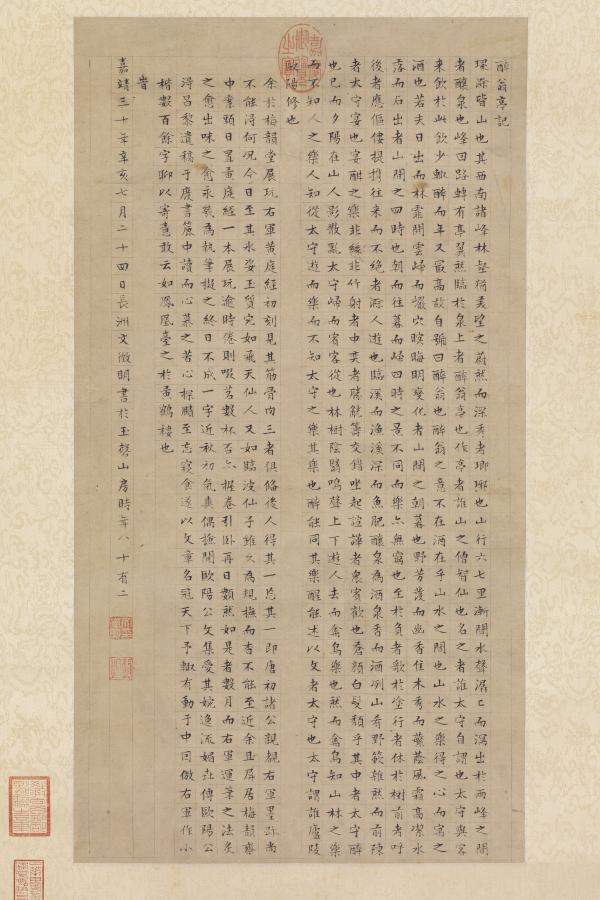 醉翁亭記
環滁皆山也其西南諸峰林壑猶美望之蔚然而深秀者瑯琊也山行六七里漸聞水聲潺〻而瀉出於兩峰之間
者釀泉也峰回路轉有亭翼然臨於泉上者醉翁亭也作亭者誰山之僧智仙也名之者誰太守自謂也太守與客
來飲於此飲少輒醉而年又最高故自號曰醉翁也醉翁之意不在酒在乎山水之間也山水之樂得之心而寓之
酒也若夫日出而林霏開雲歸而巖穴暝晦明變化者山間之朝暮也野芳發而幽香佳木秀而蘩蔭風霜高潔水
落而石出者山間之四時也朝而往暮而歸四時之景不同而樂亦無窮也至於負者歌於塗行者休於樹前者呼
後者應傴僂提攜往來而不絕者滁人遊也臨溪而漁溪深而魚肥釀泉為酒泉香而酒冽山肴野蔌雜然而前陳
者太守宴也宴酣之樂非絲非竹射者中奕者勝觥籌交錯坐起諠譁者衆賓歡也蒼顏白髮頹乎其中者太守醉
也已而夕陽在山人影散亂太守歸而賓客從也林樹陰翳鳴聲上下遊人去而禽鳥樂也然而禽鳥知山林之樂
而不知人之樂人知從太守遊而樂而不知太守之樂其樂也醉能同其樂醒能述以文者太守也太守謂誰廬陵
歐陽修也
余於梅韻堂展玩右軍黃庭經初刻見其筋骨肉三者俱備後人得其一忘其一即唐初諸公親覩右軍墨跡尚
不能得何況今日至其氷姿玉質宛如飛天仙人又如臨波仙子雖久為規橅而杳不能至近余且屏居梅韻齋
中摹頭日置黃庭經一本展玩逾時倦則啜茗數杯否亦握卷引臥再日顛然如是者數月而右軍運筆之法炙
之愈出味之愈永幾為執筆擬之終日不成一字近秋初氣爽偶撿閱歐陽公文集愛其婉逸流媚世傳歐陽公
得昌黎遺稿于廢書簏中讀而心慕之苦心探賾至忘寢食遂以文章名冠天下予輒有動于中因倣右軍作小
楷數百餘字聊以寄意敢云如鳳凰臺之於黃鶴樓也
嘉靖三十年辛亥七月二十四日長洲文徵明書於玉磬山房時年八十有二